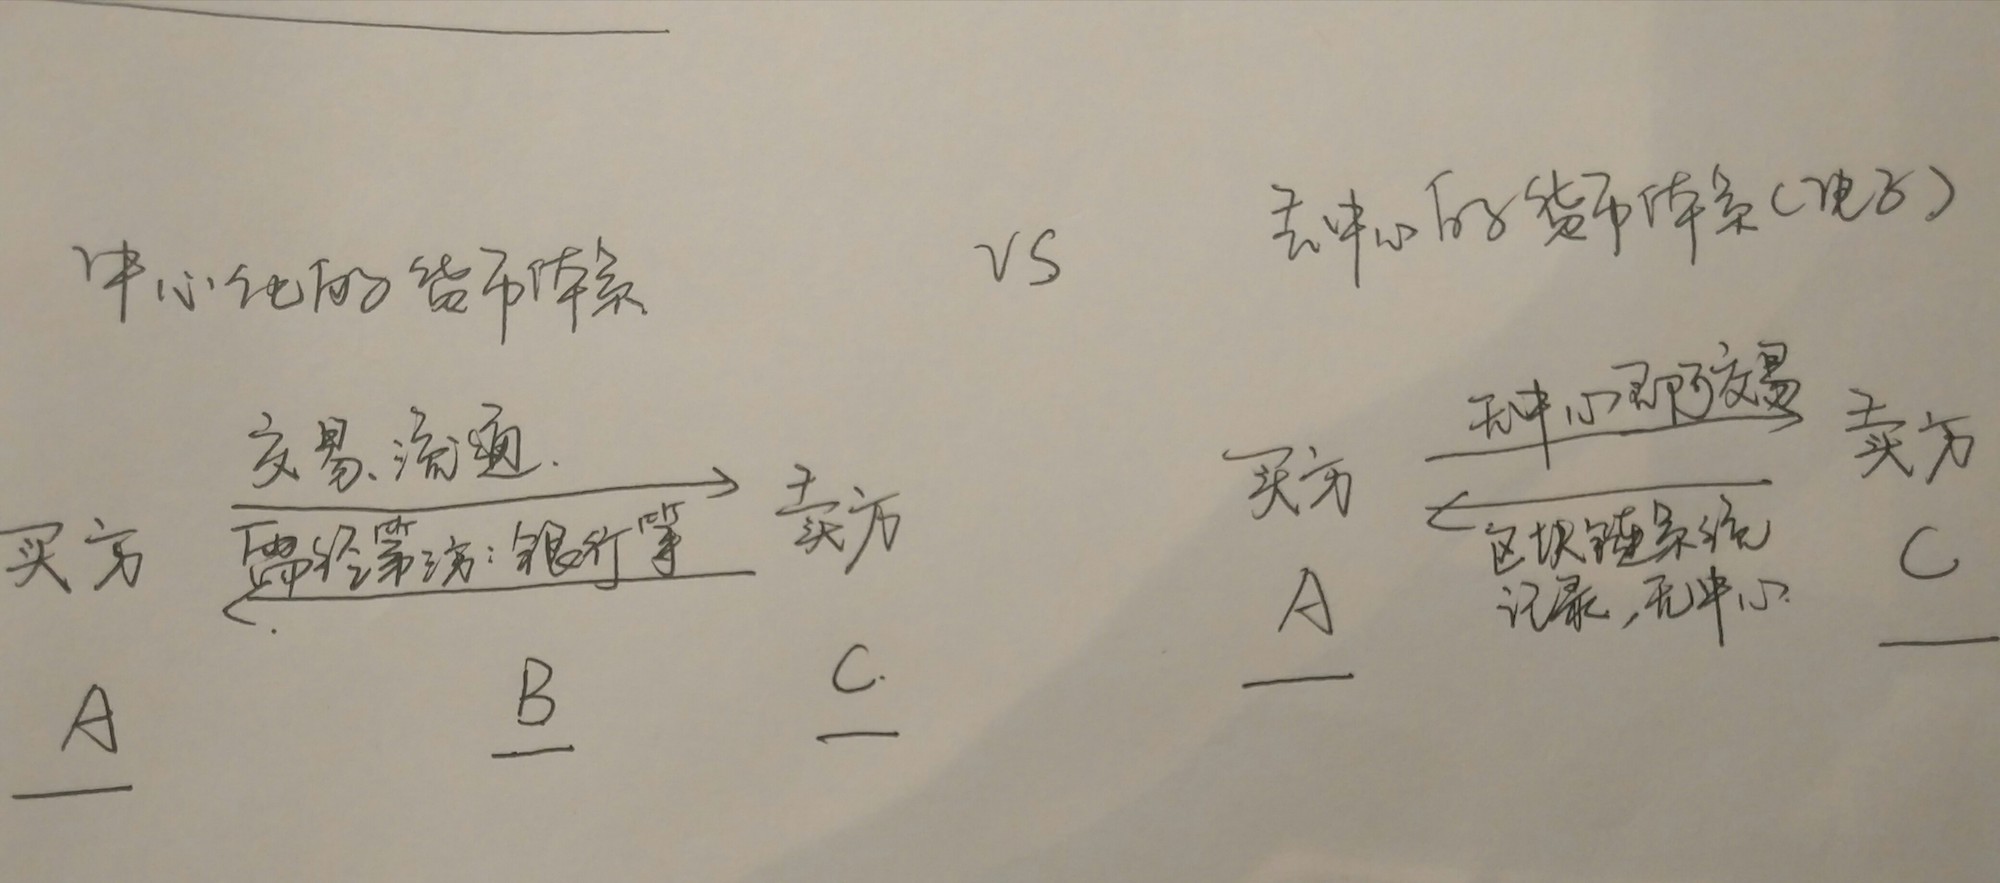 中心化的货币体系
vs
去中心的货币体系(电子)
交易、流通.
买方
卖方
需经第三方:银行等
A
B
C.
无中心即可交易
买方
卖方
区块链系统
记录,无中心.
A
C